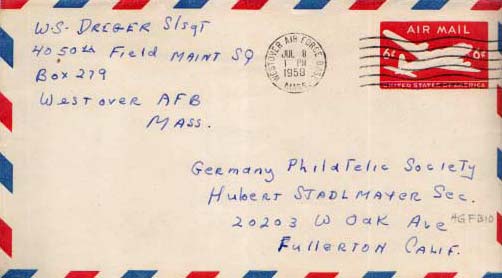 W.S. DREGER S/sgT
4050th Field MAINT SQ
Box 279
Westover AFB
MASS.
WESTOVER AIR FORCE BASE
JUL 8
1 PM
1958
MASS.
AIR MAIL
6¢ 6¢
UNITED STATES OF AMERICA
Germany Philatelic Society
Hubert STADLMAYER Sec.
20203 W Oak Ave
Fullerton Calif.